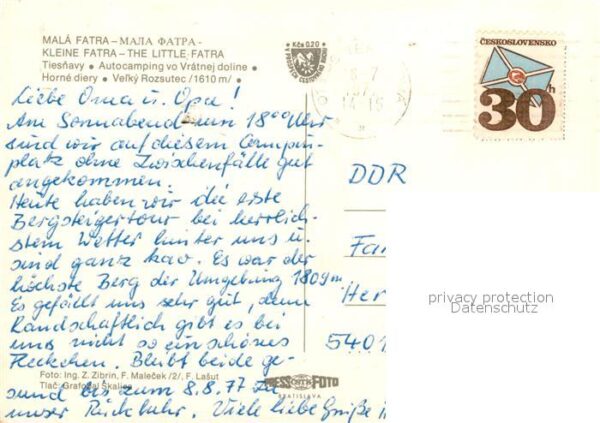 MALÁ FATRA – МАЛА ФАТРА –
KLEINE FATRA – THE LITTLE FATRA
Tiesňavy • Autocamping vo Vrátnej doline •
Horné diery • Veľký Rozsutec /1610 m/ •
Kčs 0,20
ČESKOSLOVENSKO
30h
8.-7
14-15
Liebe Oma u. Opa!
Am Sonnabend um 18°° Uhr
sind wir auf diesem Campin-
platz ohne Zwischenfälle gut
angekommen.
Heute haben wir die erste
Bergsteigertour bei herrlich-
stem Wetter hinter uns u.
sind ganz kao. Es war der
höchste Berg der Umgebung 1809m.
Es gefällt uns sehr gut, denn
landschaftlich gibt es bei
uns nicht so ein schönes
Fleckchen. Bleibt beide ge-
sund bis zum 8.8.77 zu
unser Rückkehr. Viele liebe Grüße
DDR
Fa
Her
5401
Foto: Ing. Z. Zibrín, F. Maleček /2/, F. Lašut
Tlač: Grafobal Skalica
PRESSFOTO
BRATISLAVA
privacy protection
Datenschutz